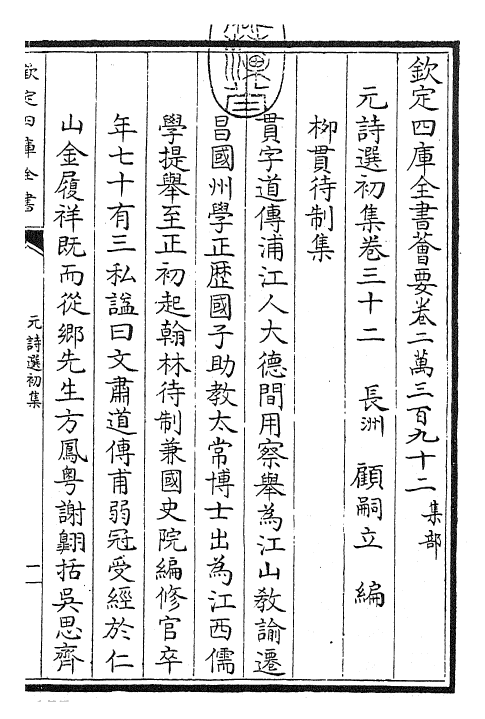 欽定四庫全書薈要卷二萬三百九十二 集部
元詩選初集卷三十二 長洲 顧嗣立 編
栁貫待制集
貫字道傳浦江人大德間用察舉為江山教諭遷
昌國州學正歴國子助教太常博士出為江西儒
學提舉至正初起翰林待制兼國史院編修官卒
年七十有三私諡曰文肅道傳甫弱冠受經於仁
山金履祥既而從鄉先生方鳳粤謝翺括吳思齊
欽定四庫全書
元詩選初集
一